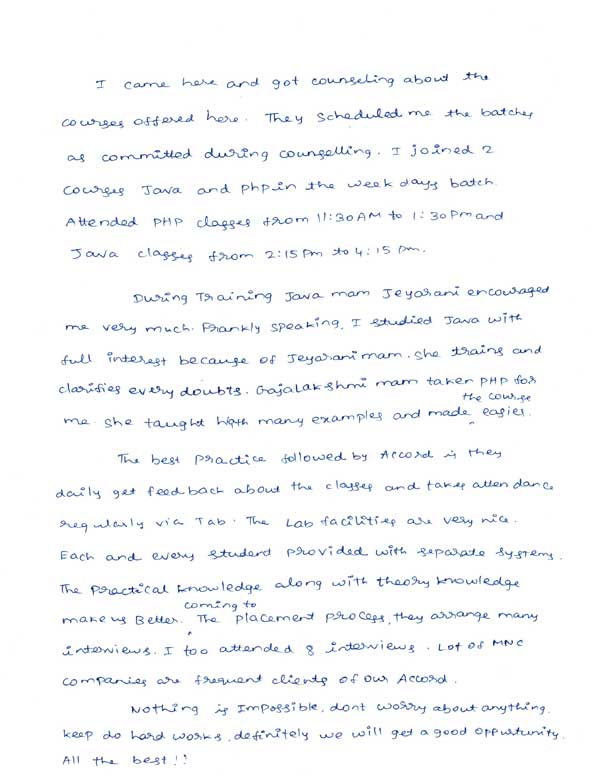 I came here and got counseling about the
courses offered here. They scheduled me the batches
as committed during counselling. I joined 2
courses Java and PhP in the week days batch.
Attended PHP classes from 11:30AM to 1:30Pm and
Java classes from 2:15Pm to 4:15 pm.
During Training Java mam Jeyarani encouraged
me very much. Frankly speaking, I studied Java with
full interest because of Jeyarani mam. She trains and
clarifies every doubts. Gajalakshmi mam taken PHP for
me. She taught with many examples and made the course easier.
The best practice followed by Accord is they
daily get feedback about the classes and takes attendance
regularly via Tab. The Lab facilities are very nice.
Each and every student provided with separate systems.
The practical knowledge along with theory knowledge
make us Better. coming to The placement process, they arrange many
interviews. I too attended 8 interviews. Lot of MNC
companies are frequent clients of our Accord.
Nothing is Impossible, dont worry about anything.
keep do hard works, definitely we will get a good oppurtunity.
All the best!!